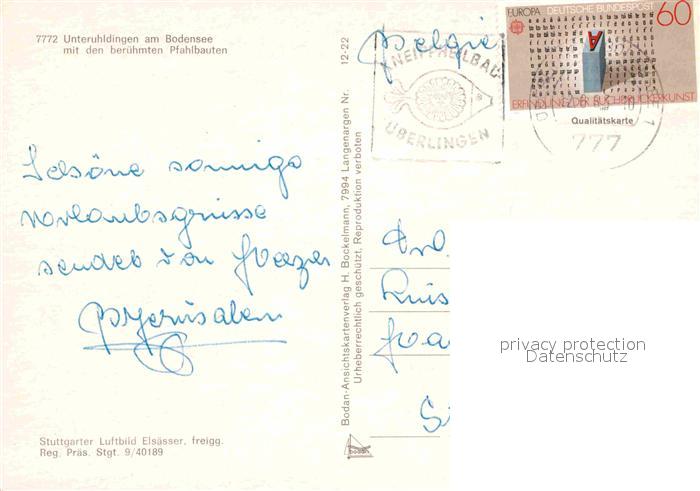 7772 Unteruhldingen am Bodensee
mit den berühmten Pfahlbauten
12-22
Belgie
KNEIPPHEILBAD
ÜBERLINGEN
EUROPA DEUTSCHE BUNDESPOST 60
ERFINDUNG DER BUCHDRUCKERKUNST
Qualitätskarte
1
777
Schöne sonnige
sendet von
Bodan-Ansichtskartenverlag H. Bockelmann, 7994 Langenargen Nr.
Urheberrechtlich geschützt, Reproduktion verboten
privacy protection
Datenschutz
Stuttgarter Luftbild Elsässer, freigg.
Reg. Präs. Stgt. 9/40189
bodan